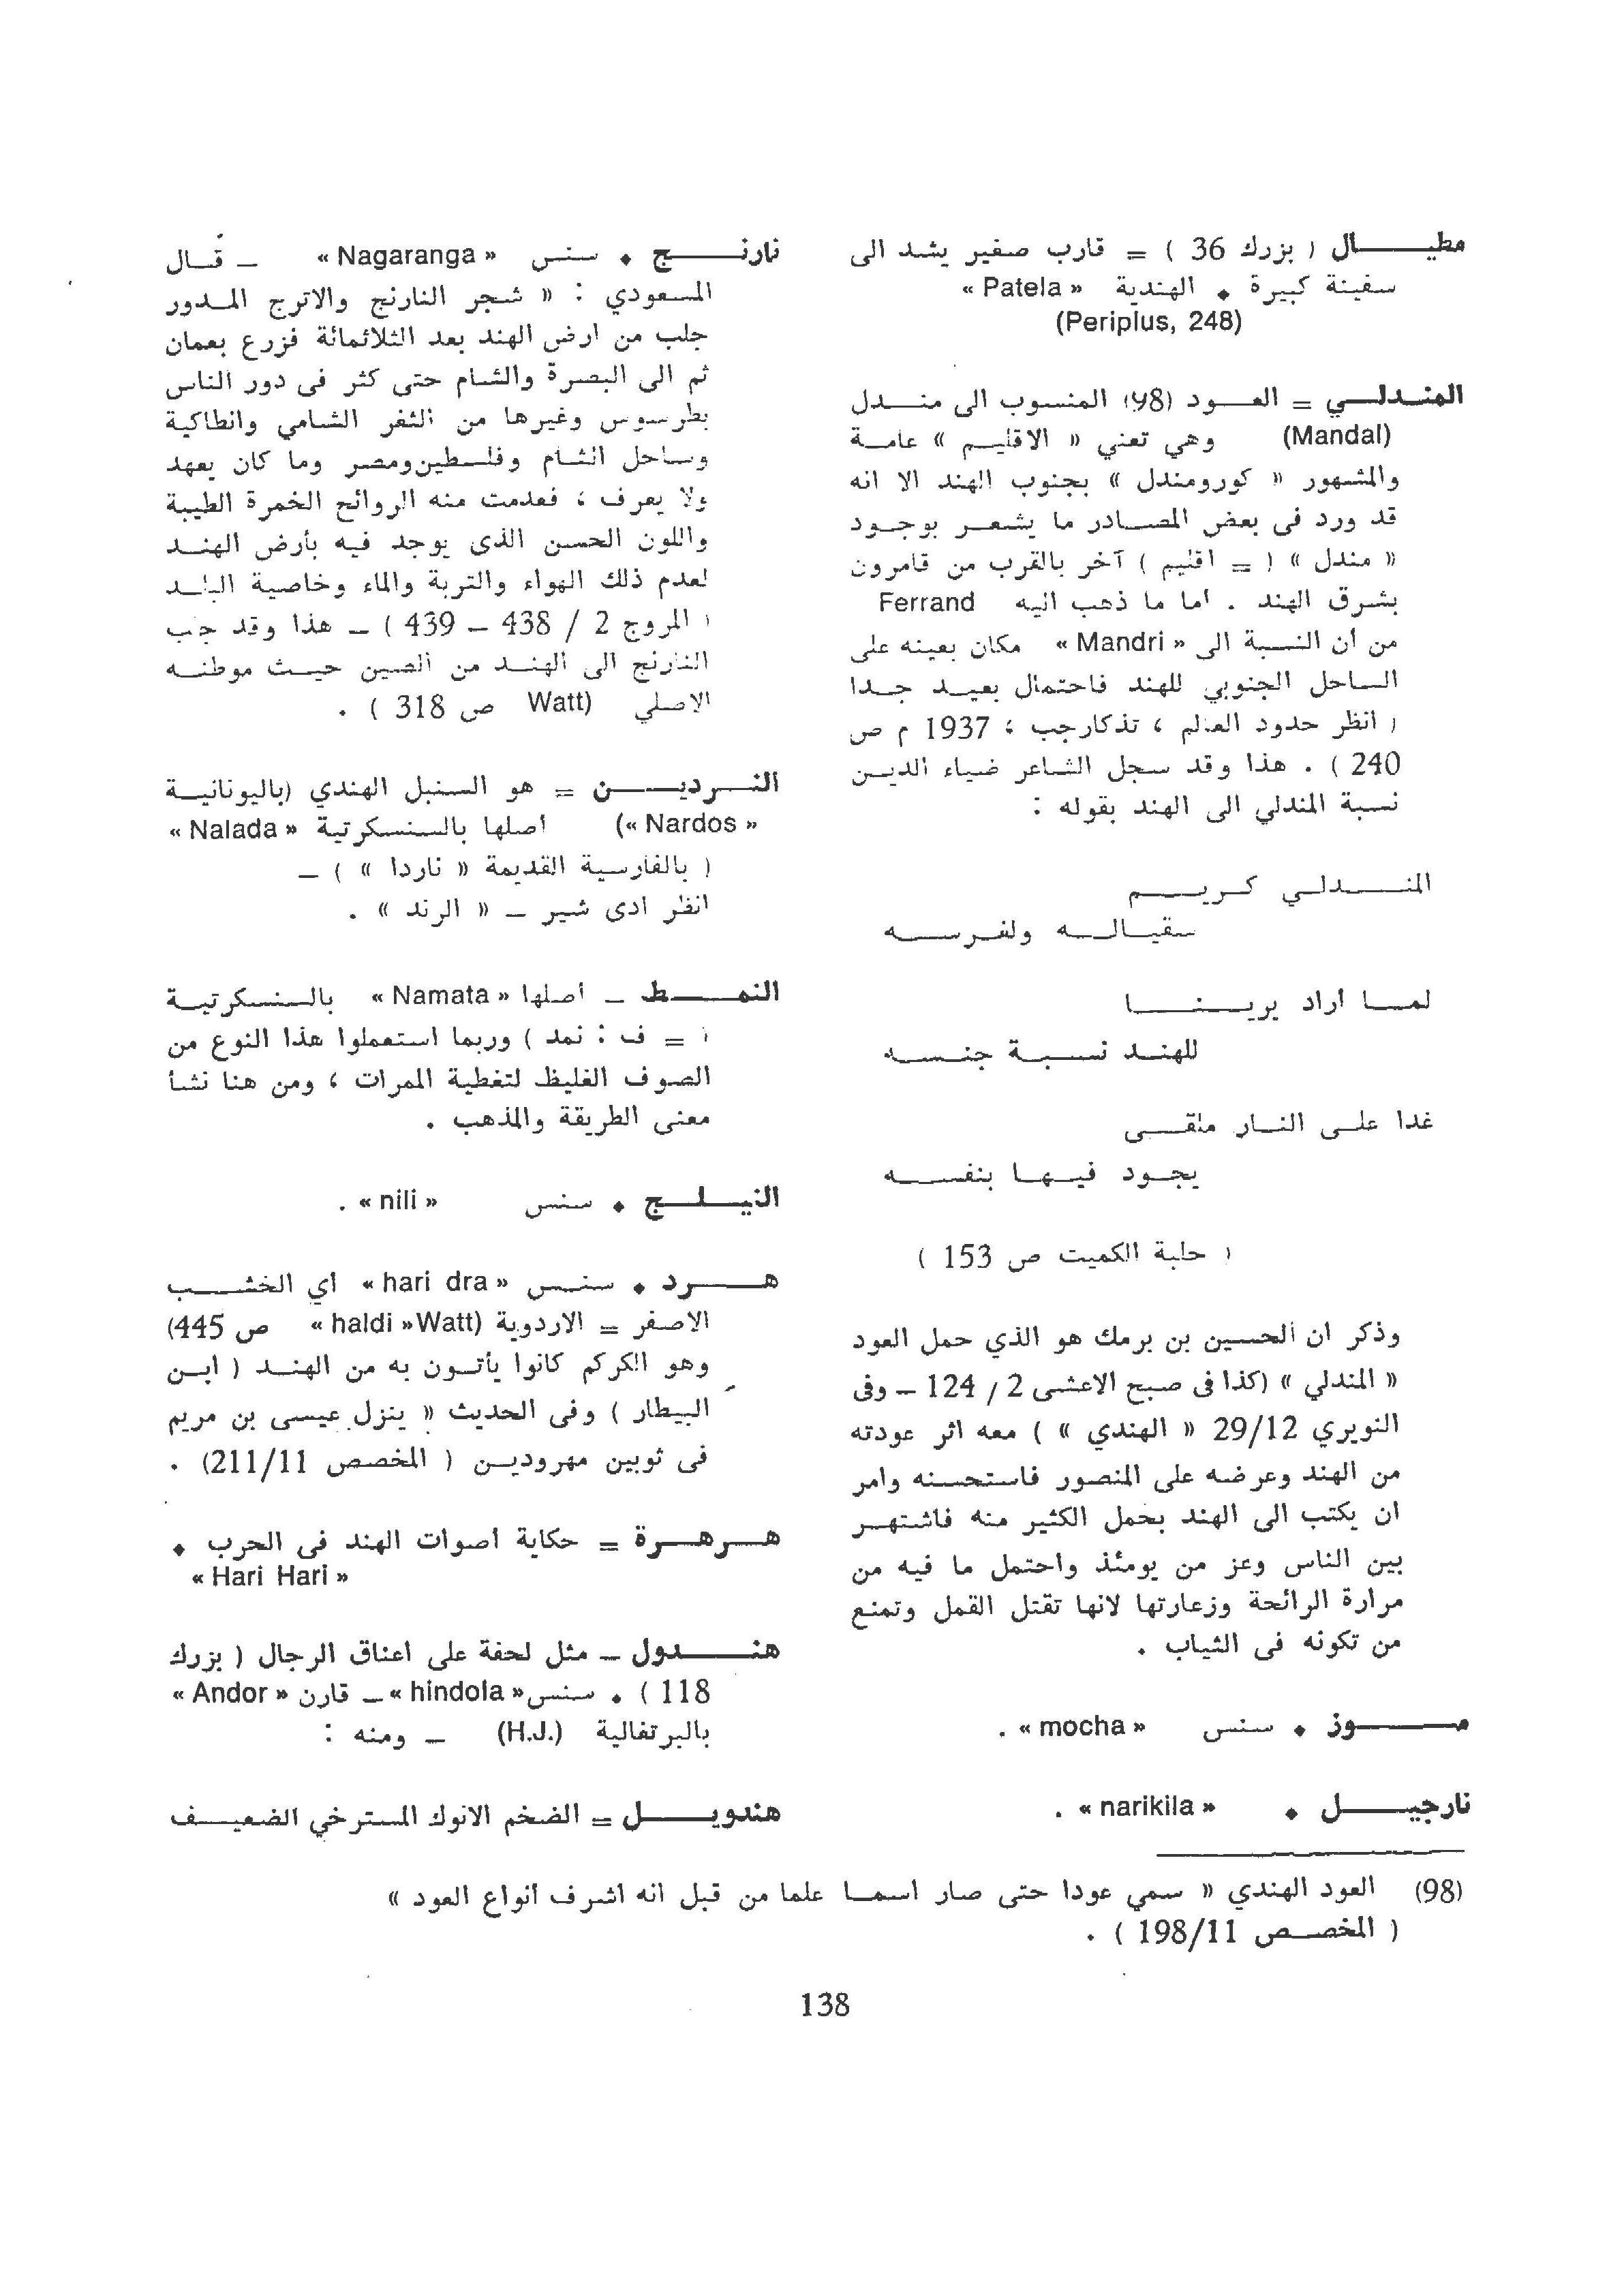 مطيال ( بزرك 36 ) = قارب صغير يشد الى
سفينة كبيرة ٠ الهندية « Patela »
(Periplus, 248)
المندلي = العود (98) المنسوب الى مندل
(Mandal) وهي تعني « الاقليم » عامة
والمشهور « كورومندل » بجنوب الهند الا انه
قد ورد فى بعض المصادر ما يشعر بوجود
« مندل » ( = اقليم ) آخر بالقرب من قامرون
بشرق الهند . اما ما ذهب اليه Ferrand
من أن النسبة الى « Mandri » مكان بعينه على
الساحل الجنوبي للهند فاحتمال بعيد جدا
( انظر حدود العالم ، تذكارجب ، 1937 م ص
240 ) . هذا وقد سجل الشاعر ضياء الدين
نسبة المندلي الى الهند بقوله :
المندلي كريم
سقياله ولغرسه
لما اراد يرينا
للهند نسبة جنسه
غدا على النار ملقى
يجود فيها بنفسه
( حلبة الكميت ص 153 )
وذكر ان الحسين بن برمك هو الذي حمل العود
« المندلي » (كذا فى صبح الاعشى 2 / 124 – وفى
النويري 29/12 « الهندي » ) معه اثر عودته
من الهند وعرضه على المنصور فاستحسنه وامر
ان يكتب الى الهند بحمل الكثير منه فاشتهر
بين الناس وعز من يومئذ واحتمل ما فيه من
مرارة الرائحة وزعارتها لانها تقتل القمل وتمنع
من تكونه فى الثياب .
موز ٠ سنس « mocha » .
نارجيل ٠ « narikila » .
نارنج ٠ سنس « Nagaranga » – قال
المسعودي : « شجر النارنج والاترج المدور
جلب من ارض الهند بعد الثلاثمائة فزرع بعمان
ثم الى البصرة والشام حتى كثر فى دور الناس
بطرسوس وغيرها من الثغر الشامي وانطاكية
وساحل الشام وفلسطين ومصر وما كان يعهد
ولا يعرف ، فعدمت منه الروائح الخمرة الطيبة
واللون الحسن الذى يوجد فيه بأرض الهند
لعدم ذلك الهواء والتربة والماء وخاصية البلد
( المروج 2 / 438 – 439 ) – هذا وقد جلب
النارنج الى الهند من الصين حيث موطنه
الاصلي (Watt ص 318 ) .
النردين = هو السنبل الهندي (باليونانية
« Nardos ») اصلها بالسنسكرتية « Nalada »
( بالفارسية القديمة « ناردا » ) –
انظر ادى شير – « الرند » .
النمط – أصلها « Namata » بالسنسكرتية
( = ف : نمد ) وربما استعملوا هذا النوع من
الصوف الغليظ لتغطية الممرات ، ومن هنا نشأ
معنى الطريقة والمذهب .
النيلج ٠ سنس « nili » .
هرد ٠ سنس « hari dra » أي الخشب
الاصفر = الاردوية (Watt« haldi » ص 445)
وهو الكركم كانوا يأتون به من الهند ( ابن
البيطار ) وفى الحديث « ينزل عيسى بن مريم
فى ثوبين مهرودين ( المخصص 211/11) .
هرهرة = حكاية اصوات الهند فى الحرب ٠
« Hari Hari »
هندول – مثل لحفة على اعناق الرجال ( بزرك
118 ) . سنس« hindola » – قارن « Andor »
بالبرتغالية (H.J.) – ومنه :
هندويل = الضخم الانوك المسترخي الضعيف
(98) العود الهندي « سمي عودا حتى صار اسما علما من قبل انه اشرف أنواع العود »
( المخصص 198/11 ) .
138